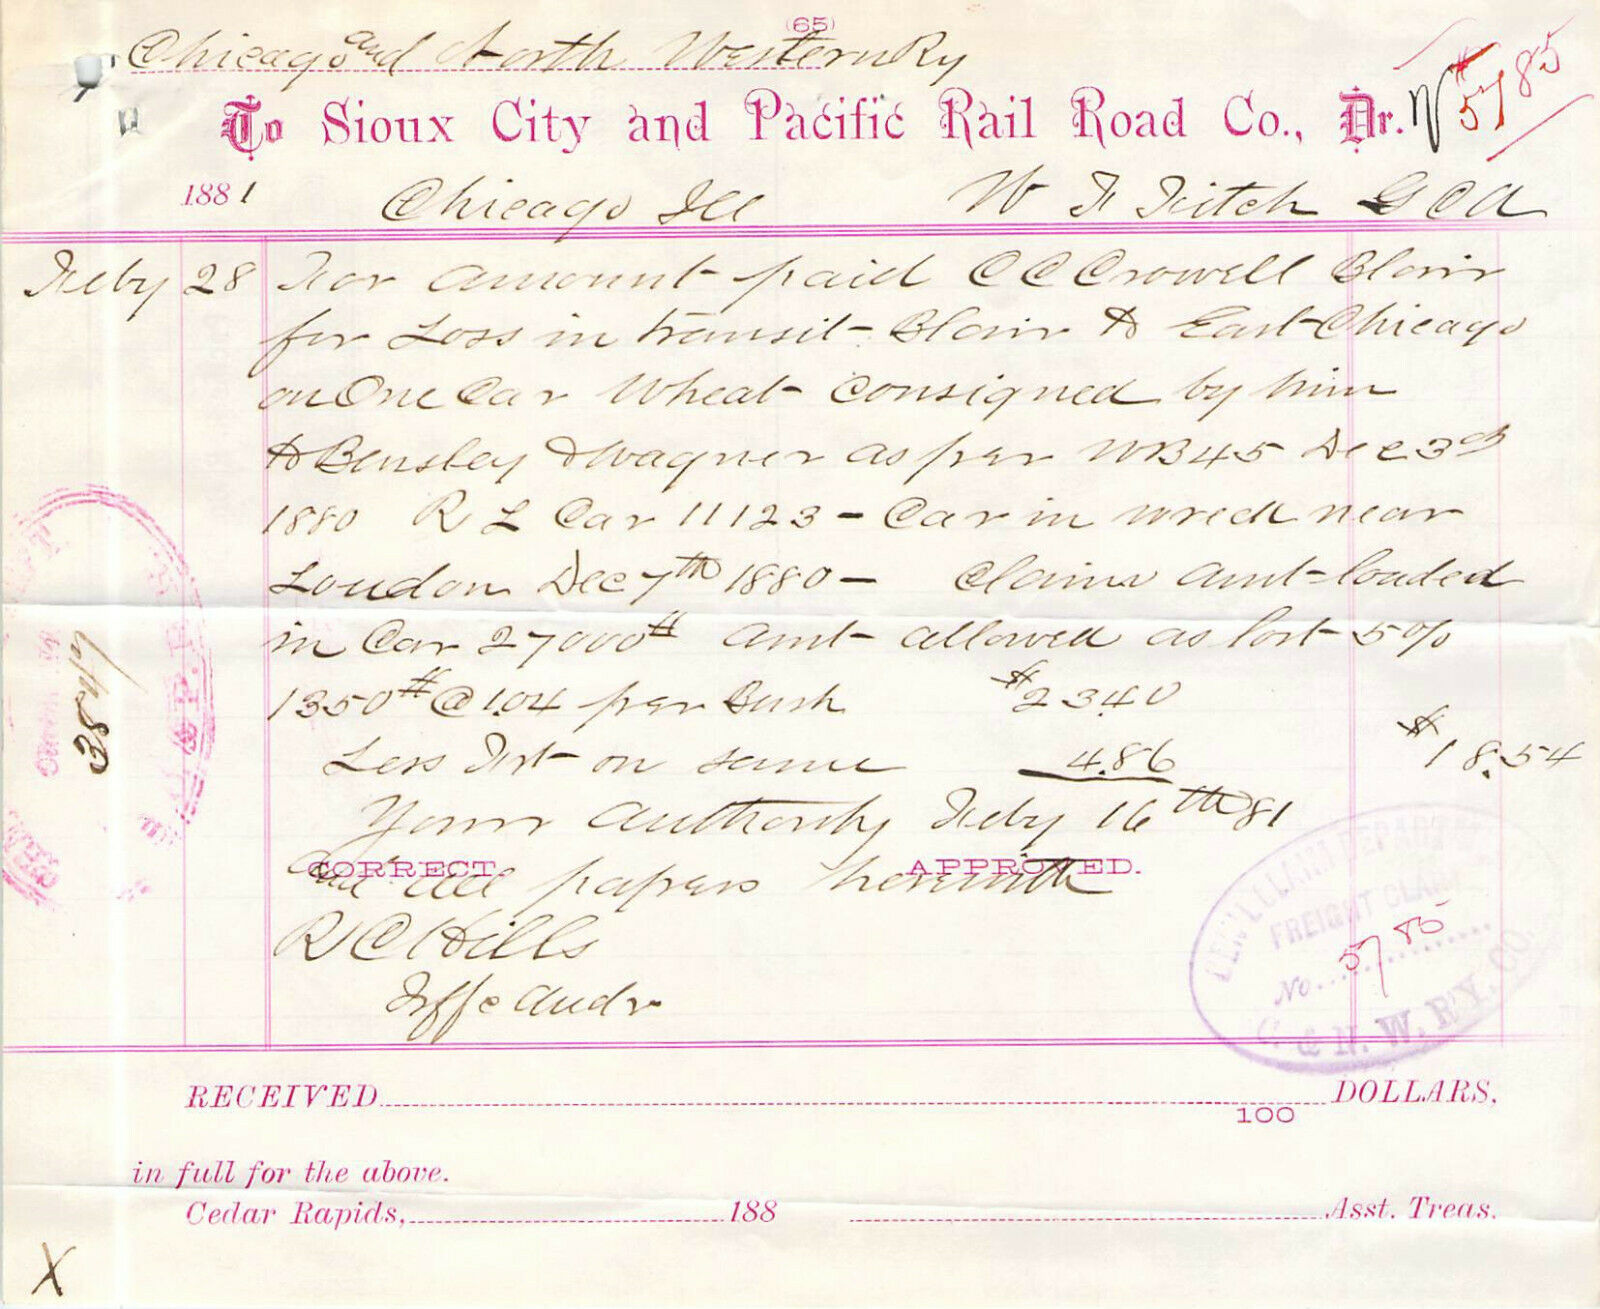 (65)
Chicago and North Western Ry
To Sioux City and Pacific Rail Road Co., Dr. № 5785
1881 Chicago Ill W H Fitch G C A
Feby 28 For amount paid C C Crowell Blair
for Loss in transit Blair to East Chicago
on One Car Wheat consigned by him
to Bensley & Wagner as per WB 45 Dec 3rd
1880 R L Car 11123 - Car in wreck near
Loudon Dec 7th 1880 - Claims amt loaded
in Car 27000# amt allowed as lost 5%
1350# @ 1.04 per Bush $23.40
Less Frt on same 4.86 $18.54
Your authority Feby 16th 81
CORRECT. APPROVED.
and all papers herewith
R C Hills
Frt Audr
3847
FREIGHT CLAIM
No. 5785
C. & N. W. R'Y. CO.
RECEIVED DOLLARS,
100
in full for the above.
Cedar Rapids, 188 Asst. Treas.
X